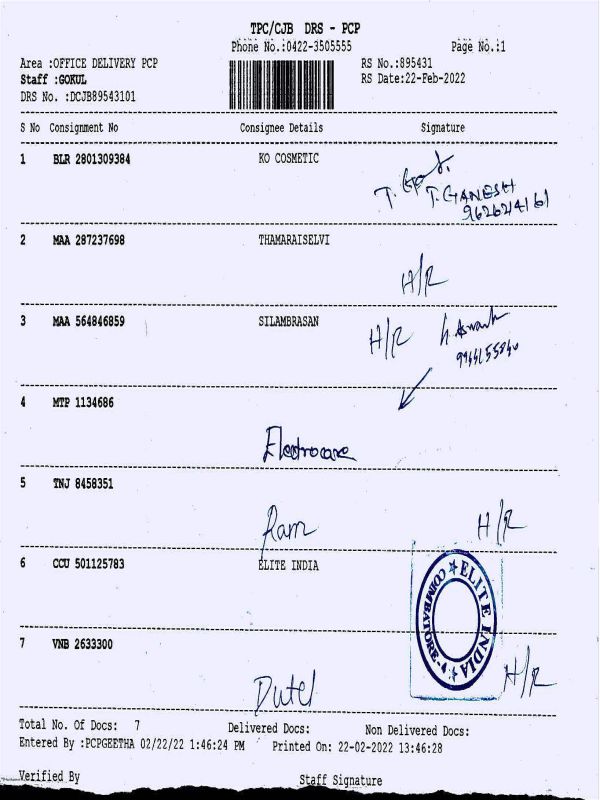 TPC/CJB DRS - PCP
Phone No.:0422-3505555 Page No.:1
Area :OFFICE DELIVERY PCP RS No.:895431
Staff :GOKUL RS Date:22-Feb-2022
DRS No. :DCJB89543101
S No Consignment No Consignee Details Signature
1 BLR 2801309384 KO COSMETIC
T. GANESH
2 MAA 287237698 THAMARAISELVI
H/R
3 MAA 564846859 SILAMBRASAN H/R
4 MTP 1134686
Electrocare
5 TNJ 8458351
Ram H/R
6 CCU 501125783 ELITE INDIA
ELITE INDIA
COIMBATORE-4
7 VNB 2633300
H/R
Total No. Of Docs: 7 Delivered Docs: Non Delivered Docs:
Entered By :PCPGEETHA 02/22/22 1:46:24 PM Printed On: 22-02-2022 13:46:28
Verified By Staff Signature